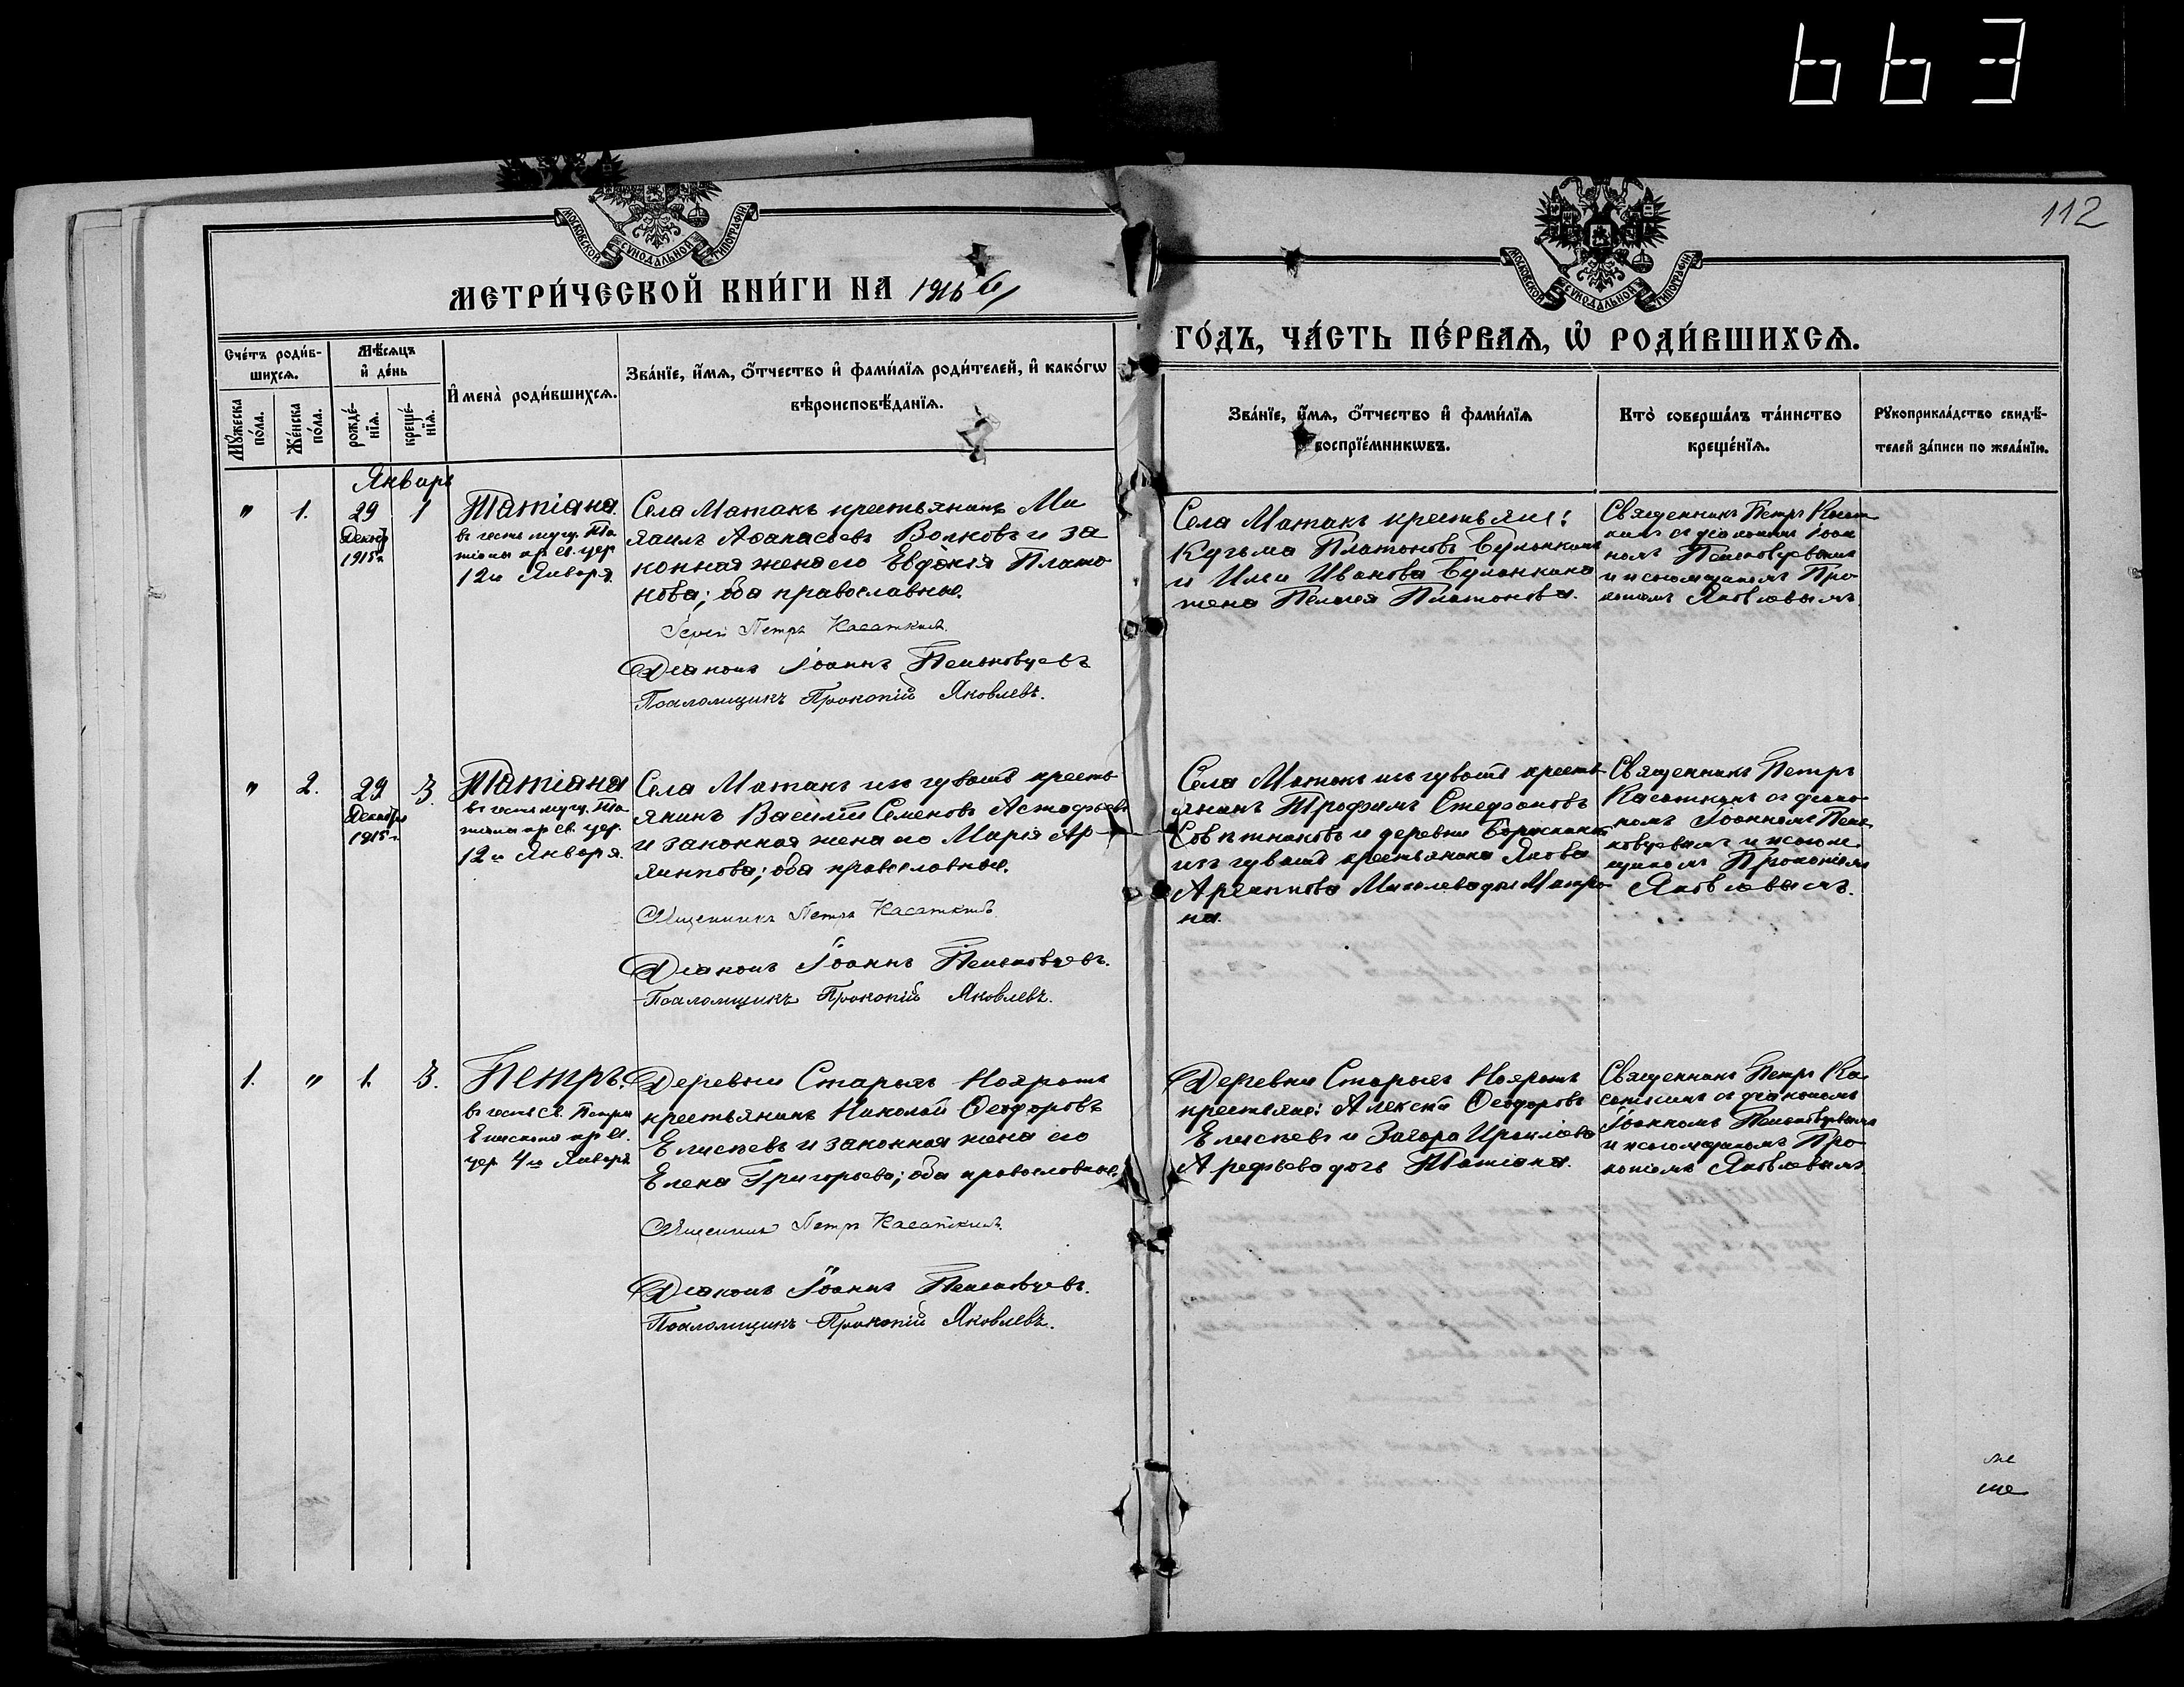 663
112
МОСКОВСКОЙ СѴНОДАЛЬНОЙ ТИПОГРАФІИ
МОСКОВСКОЙ СѴНОДАЛЬНОЙ ТИПОГРАФІИ
МЕТРИ́ЧЕСКОЙ КНИ́ГИ НА 1916
ГО́ДЪ, ЧА́СТЬ ПЕ́РВАѦ, Ѡ҆ РОДИ́ВШИХСѦ.
Сче́тъ роди́в-
шихсѧ.
Мѣ́сѧцъ
и҆ де́нь
Мꙋ́жеска
по́ла.
Же́нска
по́ла.
рожде́-
нїѧ.
креще́-
нїѧ.
И҆мена̀ роди́вшихсѧ.
Зва́нїе, и҆́мѧ, ѻ҆́тчество и҆ фами́лїѧ роди́телей, и҆ како́гѡ
вѣроисповѣ́данїѧ.
Зва́нїе, и҆́мѧ, ѻ҆́тчество и҆ фами́лїѧ
воспрїе́мникѡвъ.
Кто̀ соверша́лъ та́инство
креще́нїѧ.
Рꙋкоприкла́дство свидѣ́-
телей за́писи по жела́нїю.
Январь
" 1. 29 1
Декабр
1915 г.
Татіана.
въ честь муч. Та
тіаны пр. св. цер.
12 го Января.
Села Матакъ крестьянинъ Ми
хаилъ Аѳанасьевъ Волковъ и за
конная жена его Евдокія Плато
нова; оба православные.
Іерей Петръ Касаткинъ.
Діаконъ Іоаннъ Пеньковцевъ
Псаломщикъ Прокопій Яковлевъ.
Села Матакъ крестьяне:
Кузьма Платоновъ
и Ивана
жена Пелагея Платонова.
Священникъ Петръ Касат
кинъ съ діакономъ Іоан
номъ Пеньковцевымъ
и псаломщикомъ Про
копіемъ Яковлевымъ.
" 2. 29 3.
Декабря
1915 г.
Татіана
въ честь муч. Та
тіаны пр. св. цер.
12 го Января.
Села Матакъ изъ чувашъ кресть
янинъ Василій Семеновъ Астафьевъ
и законная жена его Марія Ар
хиппова; оба православные.
Священникъ Петръ Касаткинъ
Діаконъ Іоаннъ Пеньковцевъ.
Псаломщикъ Прокопій Яковлевъ.
Села Матакъ изъ чувашъ кресть
янинъ Трофимъ Стефановъ
Совѣтниковъ и деревни
изъ чувашъ крестьянина Якова
Архиппова дочь Матро
на.
Священникъ Петръ
Касаткинъ съ діако
номъ Іоанномъ Пень
ковцевымъ и псалом
щикомъ Прокопіемъ
Яковлевымъ.
1. " 1. 3.
Петръ.
въ честь св. Петра
Епископа пр. св.
цер. 4 го Января
Деревни Старыхъ Нояромъ
крестьянинъ Николай Ѳеодоровъ
Елисѣевъ и законная жена его
Елена Григорьева; оба православные.
Священникъ Петръ Касаткинъ.
Діаконъ Іоаннъ Пеньковцевъ.
Псаломщикъ Прокопій Яковлевъ.
Деревни Старыхъ Нояромъ
крестьяне: Алексѣй Ѳеодоровъ
Елисѣевъ и Захара
Арефьева дочь Татіана.
Священникъ Петръ Ка
саткинъ съ діакономъ
Іоанномъ Пеньковцевымъ
и псаломщикомъ Про
копіемъ Яковлевымъ.